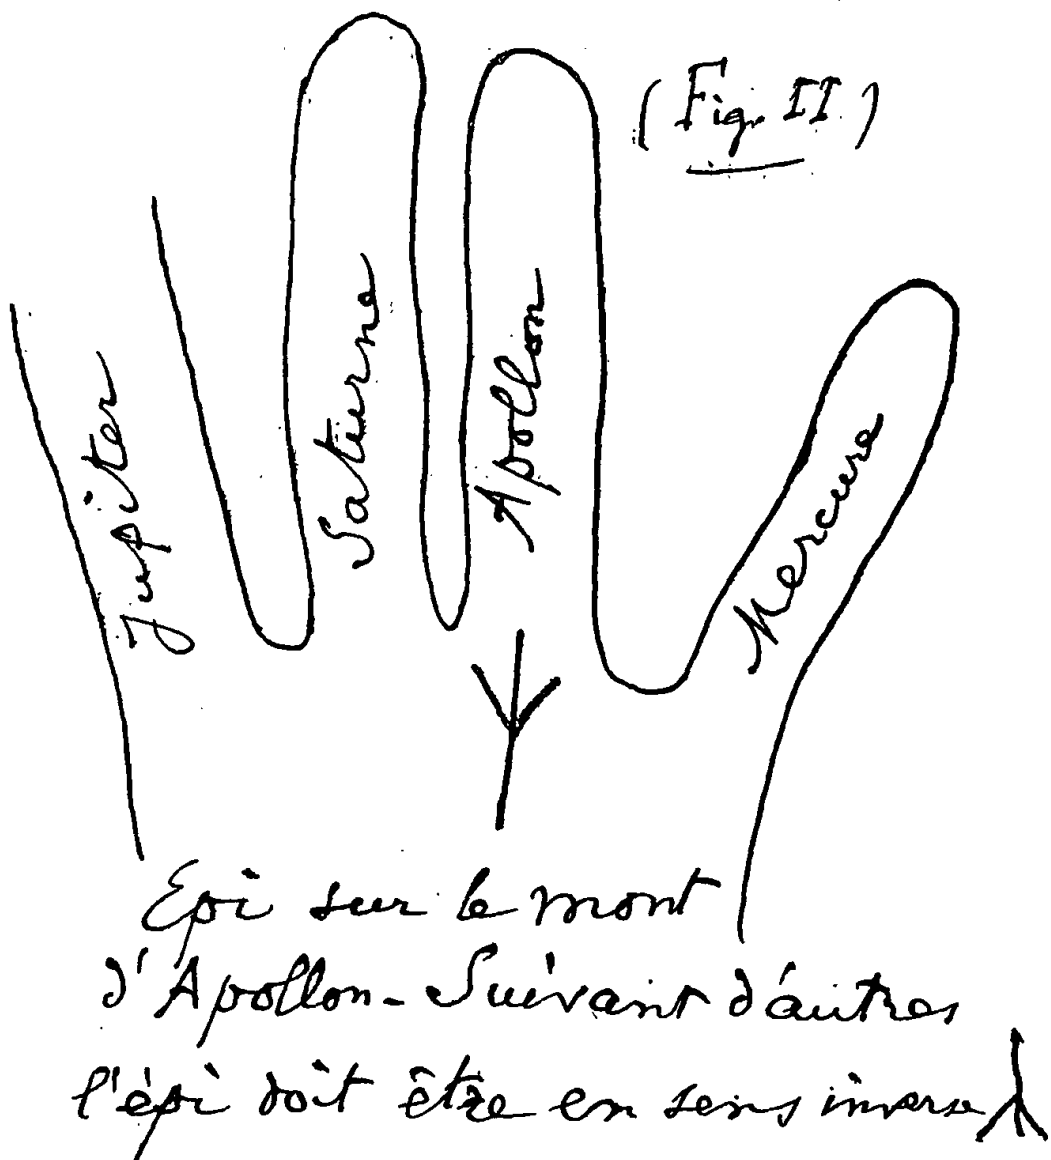 (Fig. II)
Jupiter
Saturne
Apollon
Mercure
Epi sur le mont
d'Apollon - Suivant d'autres
l'épi doit être en sens inverse